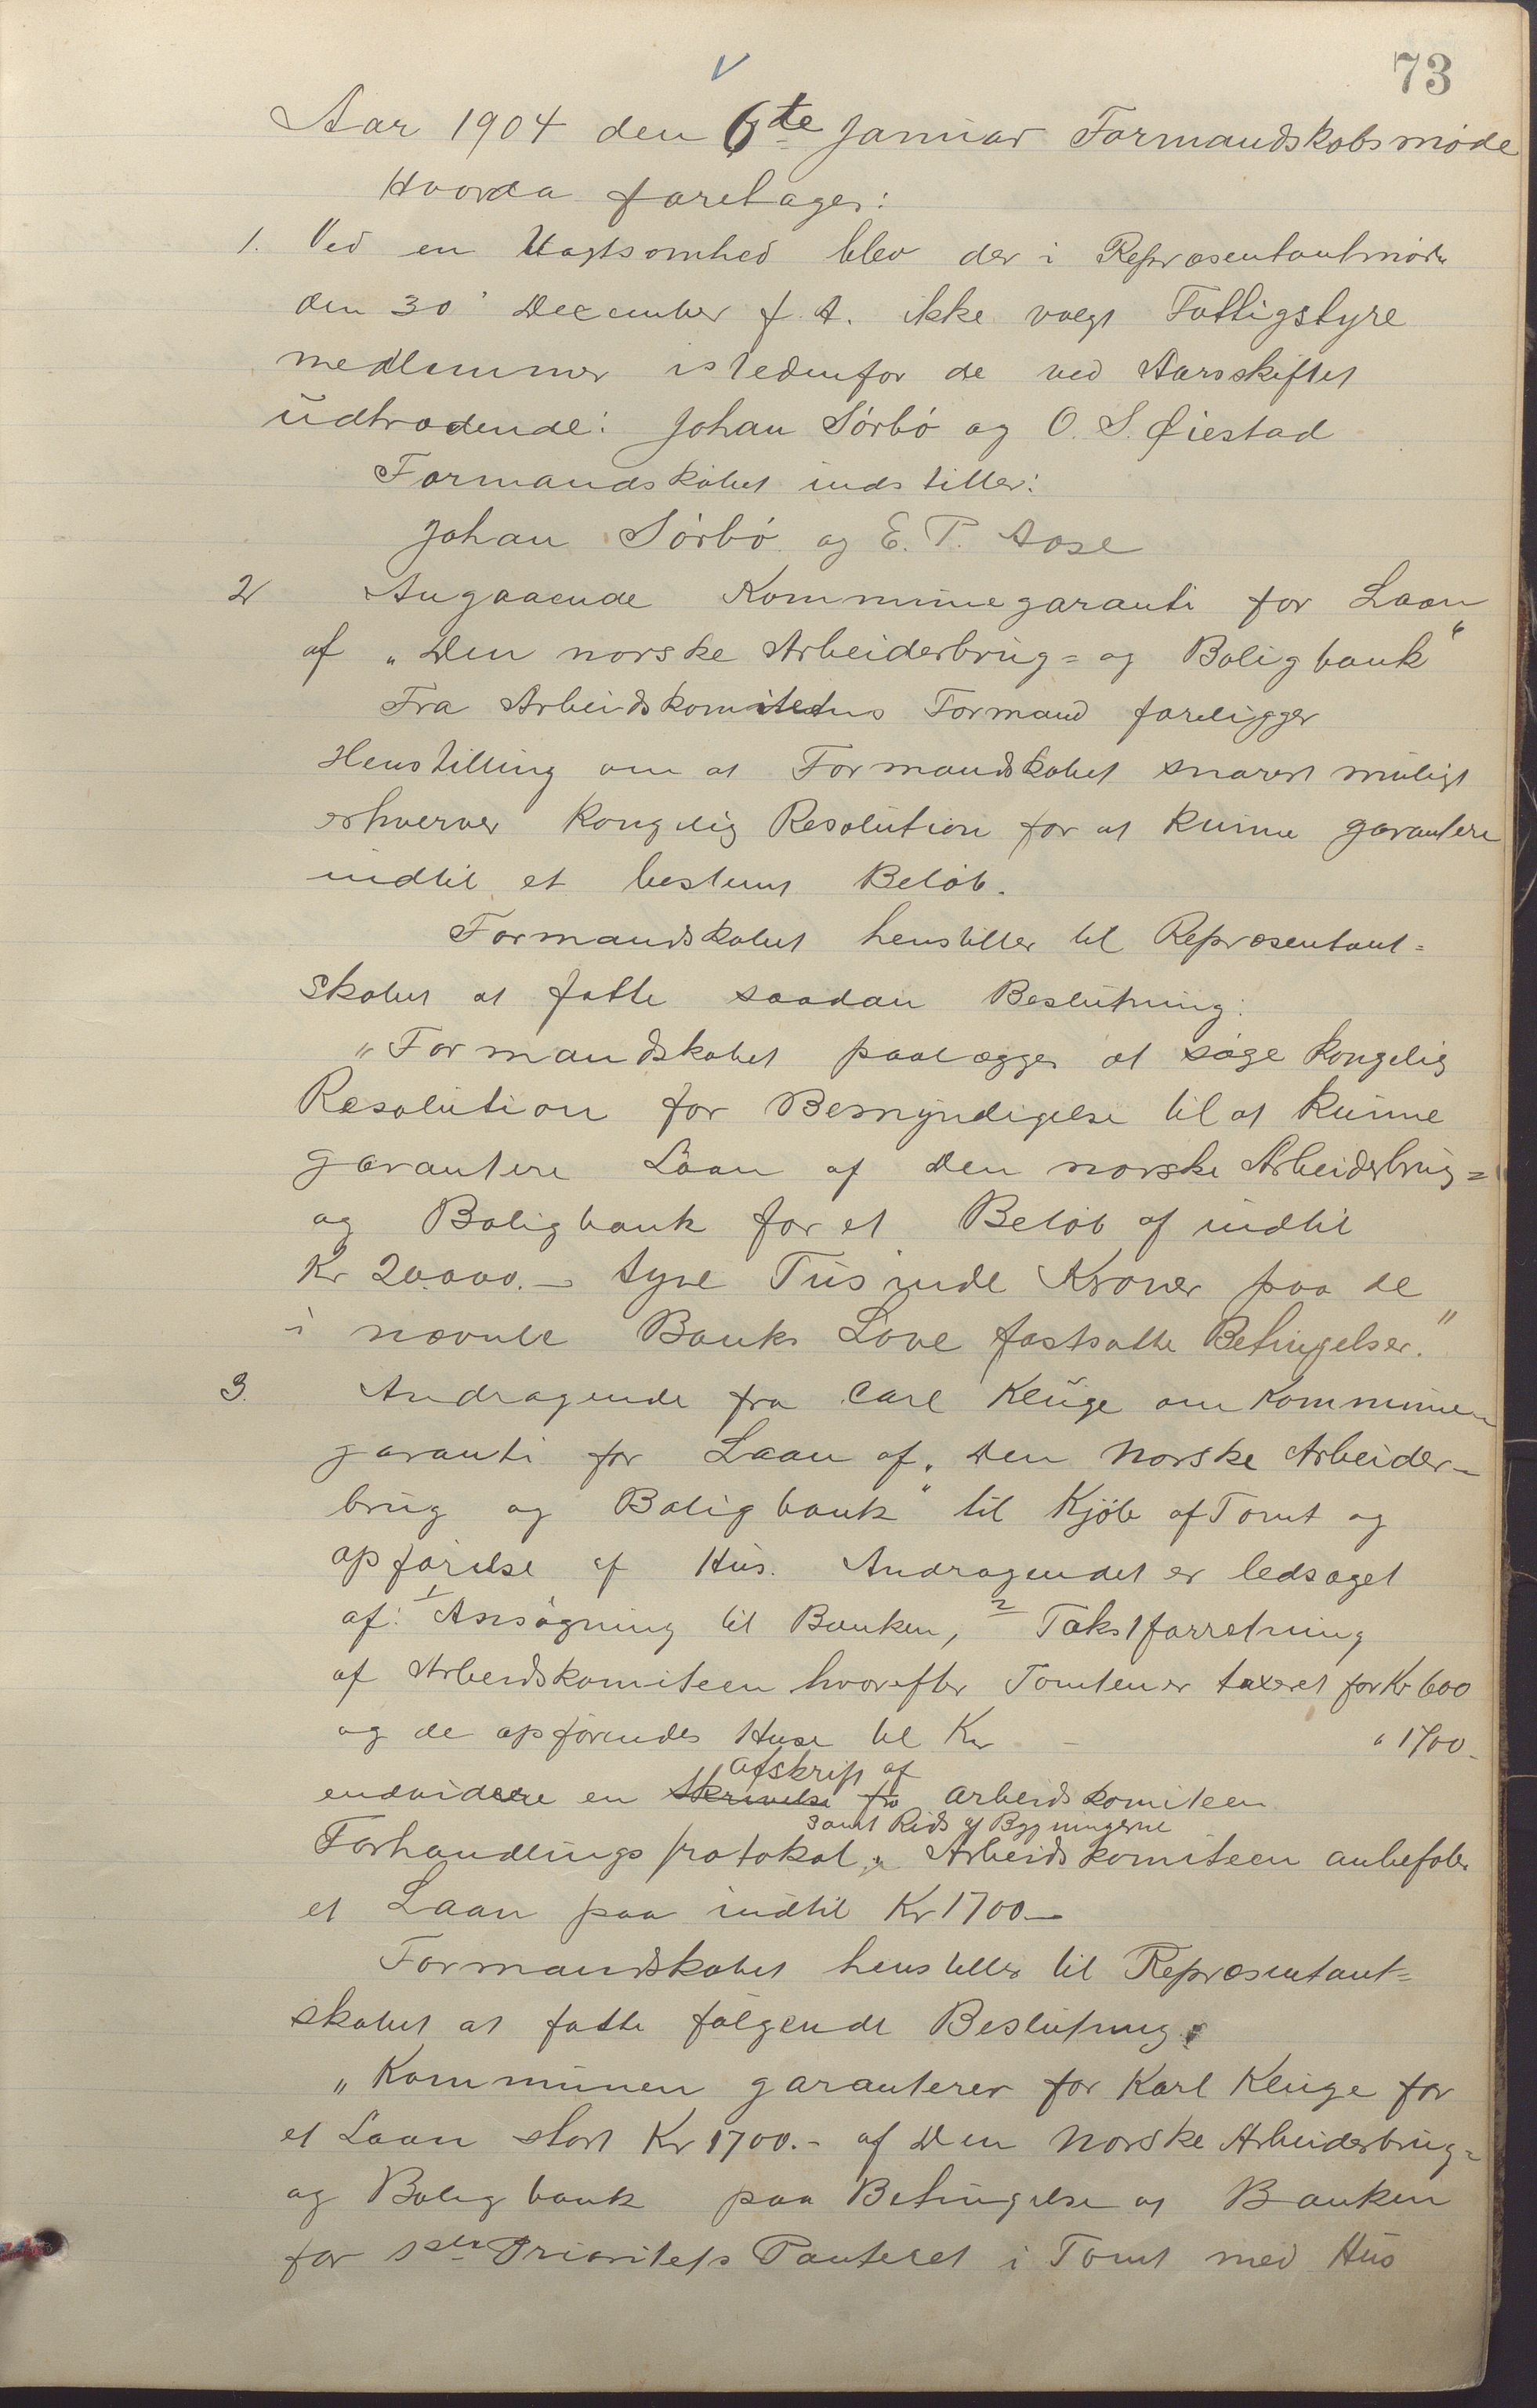 73
Aar 1904 den 6te Januar Formandskabsmøde
Hvorda foretages:
1. Ved en Uagtsomhed blev der i Repræsentantmøde
den 30' December f. A. ikke valgt Fattigstyre
medlemmer istedenfor de ved Aarsskiftet
udtrædende: Johan Sörbö og O. S. Øiestad
Formandskabet indstiller:
Johan Sörbö og E. T. Aase
2 Angaaende Kommunegaranti for Laan
af „Den norske Arbeiderbrug= og Boligbank“
Fra Arbeidskomiteens Formand foreligger
Henstilling om at Formandskabet snarest muligt
erhverver Kongelig Resolution for at kunne garantere
indtil et bestemt Beløb.
Formandskabet henstiller til Repræsentant=
skabet at fatte saadan Beslutning:
„Formandskabet paalægges at søge kongelig
Resolution for Bemyndigelse til at kunne
garantere Laan af Den norske Arbeiderbrug=
og Boligbank for et Beløb af indtil
Kr 20.000.- tyve Tusinde Kroner paa de
i nævnte Banks Love fastsatte Betingelser.“
3. Andragende fra Carl Kluge om Kommunen
garanti for Laan af „Den Norske Arbeider-
brug og Boligbank“ til Kjøb af Tomt og
opførelse af Hus. Andragendet er ledsaget
af: 1 Ansøgning til Banken, 2 Takstforretning
af Arbeidskomiteen hvorefter Tomten er taxeret for Kr 600
og de opførendes Huse til Kr - " 1700-
afskrift af
endvidere en Skrivelse fra arbeidskomiteen
samt Rids af Bygningerne
Forhandlingsprotokol. Arbeidskomiteen anbefaler
et Laan paa indtil Kr 1700-
Formandskabet henstiller til Repræsentant=
skabet at fatte følgende Beslutning:
„Kommunen garanterer for Karl Kluge for
et Laan stort Kr 1700.- af Den Norske Arbeiderbrug=
og Boligbank paa Betingelse at Banken
for 1ste Prioritets Panteret i Tomt med Hus